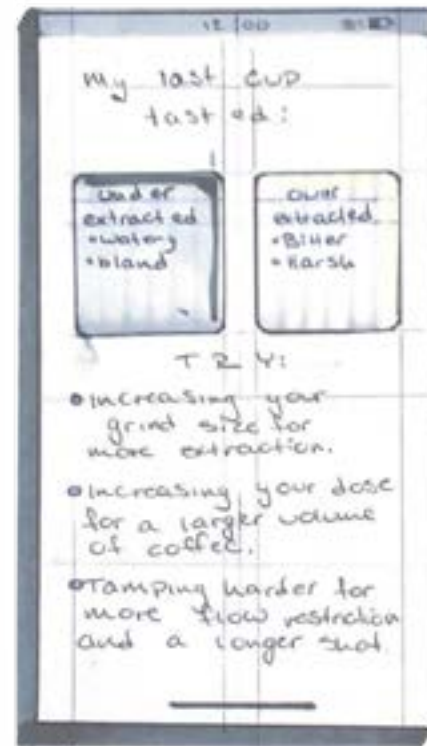 12:00
My last cup
tasted:
Under
extracted
• Watery
• bland
over
extracted
• Bitter
• Harsh
TRY:
• Increasing your
grind size for
more extraction.
• Increasing your dose
for a larger volume
of coffee.
• Tamping harder for
more flow restriction
and a longer shot.